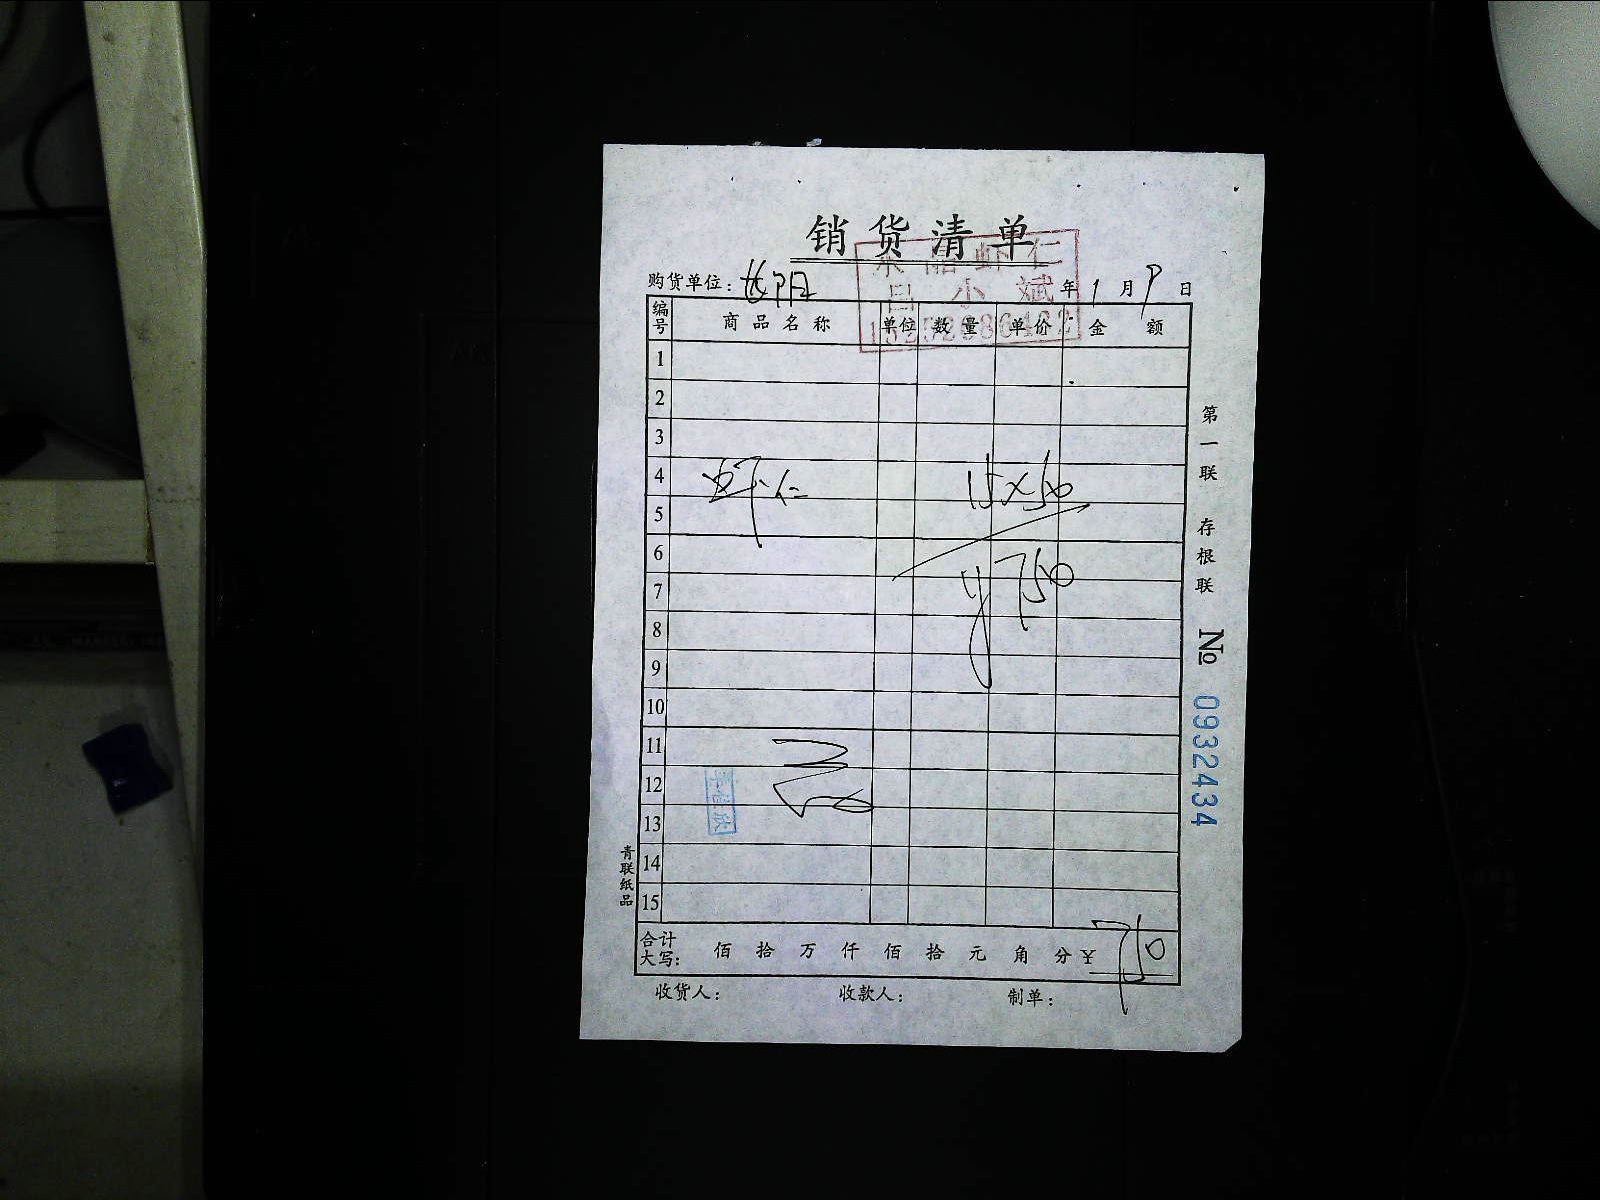 销货清单
虾仁
小斌
购货单位： 年1月9日
编号 商品名称 单位 数量 单价 金额
1
2
3
4 虾仁 15×50
5
6
7 ¥750
8
9
10
11
12
13
14
15
合计大写： 佰 拾 万 仟 佰 拾 元 角 分 ¥ 750
收货人： 收款人： 制单：
第一联 存根联
№ 0932434
青联纸品